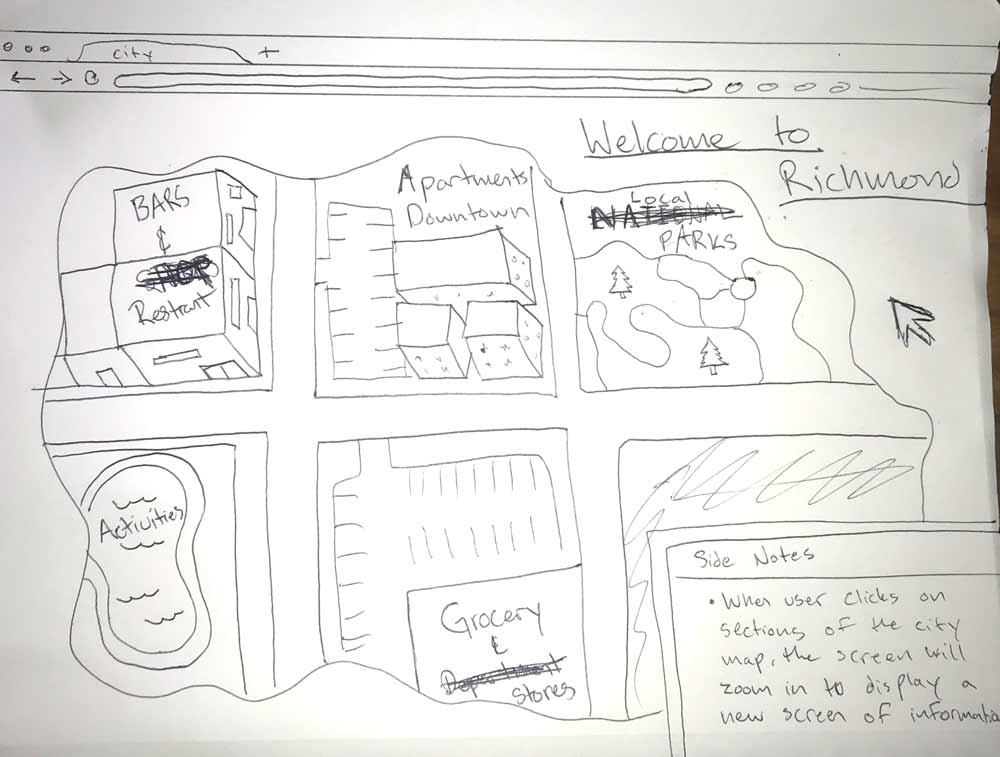 city
Welcome to
Richmond
BARS
&
Restrant
Apartments
Downtown
Local
NATIONAL
PARKS
Activities
Grocery
&
Department
Stores
Side Notes
• When user clicks on
sections of the city
map, the screen will
zoom in to display a
new screen of informatio